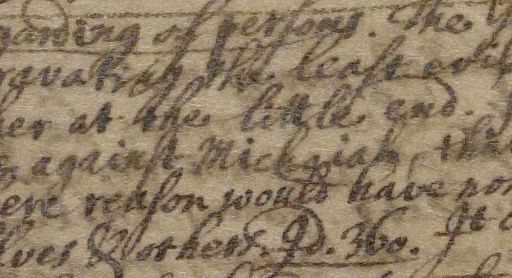 garding of persons. The
gravating the least evil
her at the little end.
against Michaiah, tha
ere reason would have no
lves & others. Id. 360. It